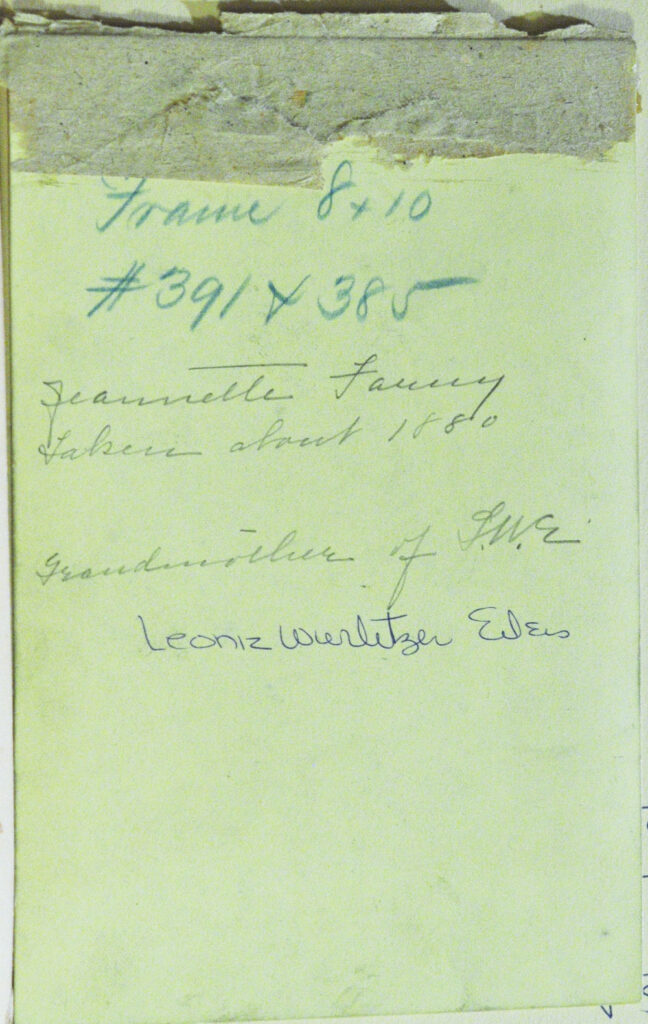 Frame 8x10
#391 & 385
Jeannette Farny
Taken about 1880
Grandmother of L.W.E.
Leonie Wurlitzer Eilers